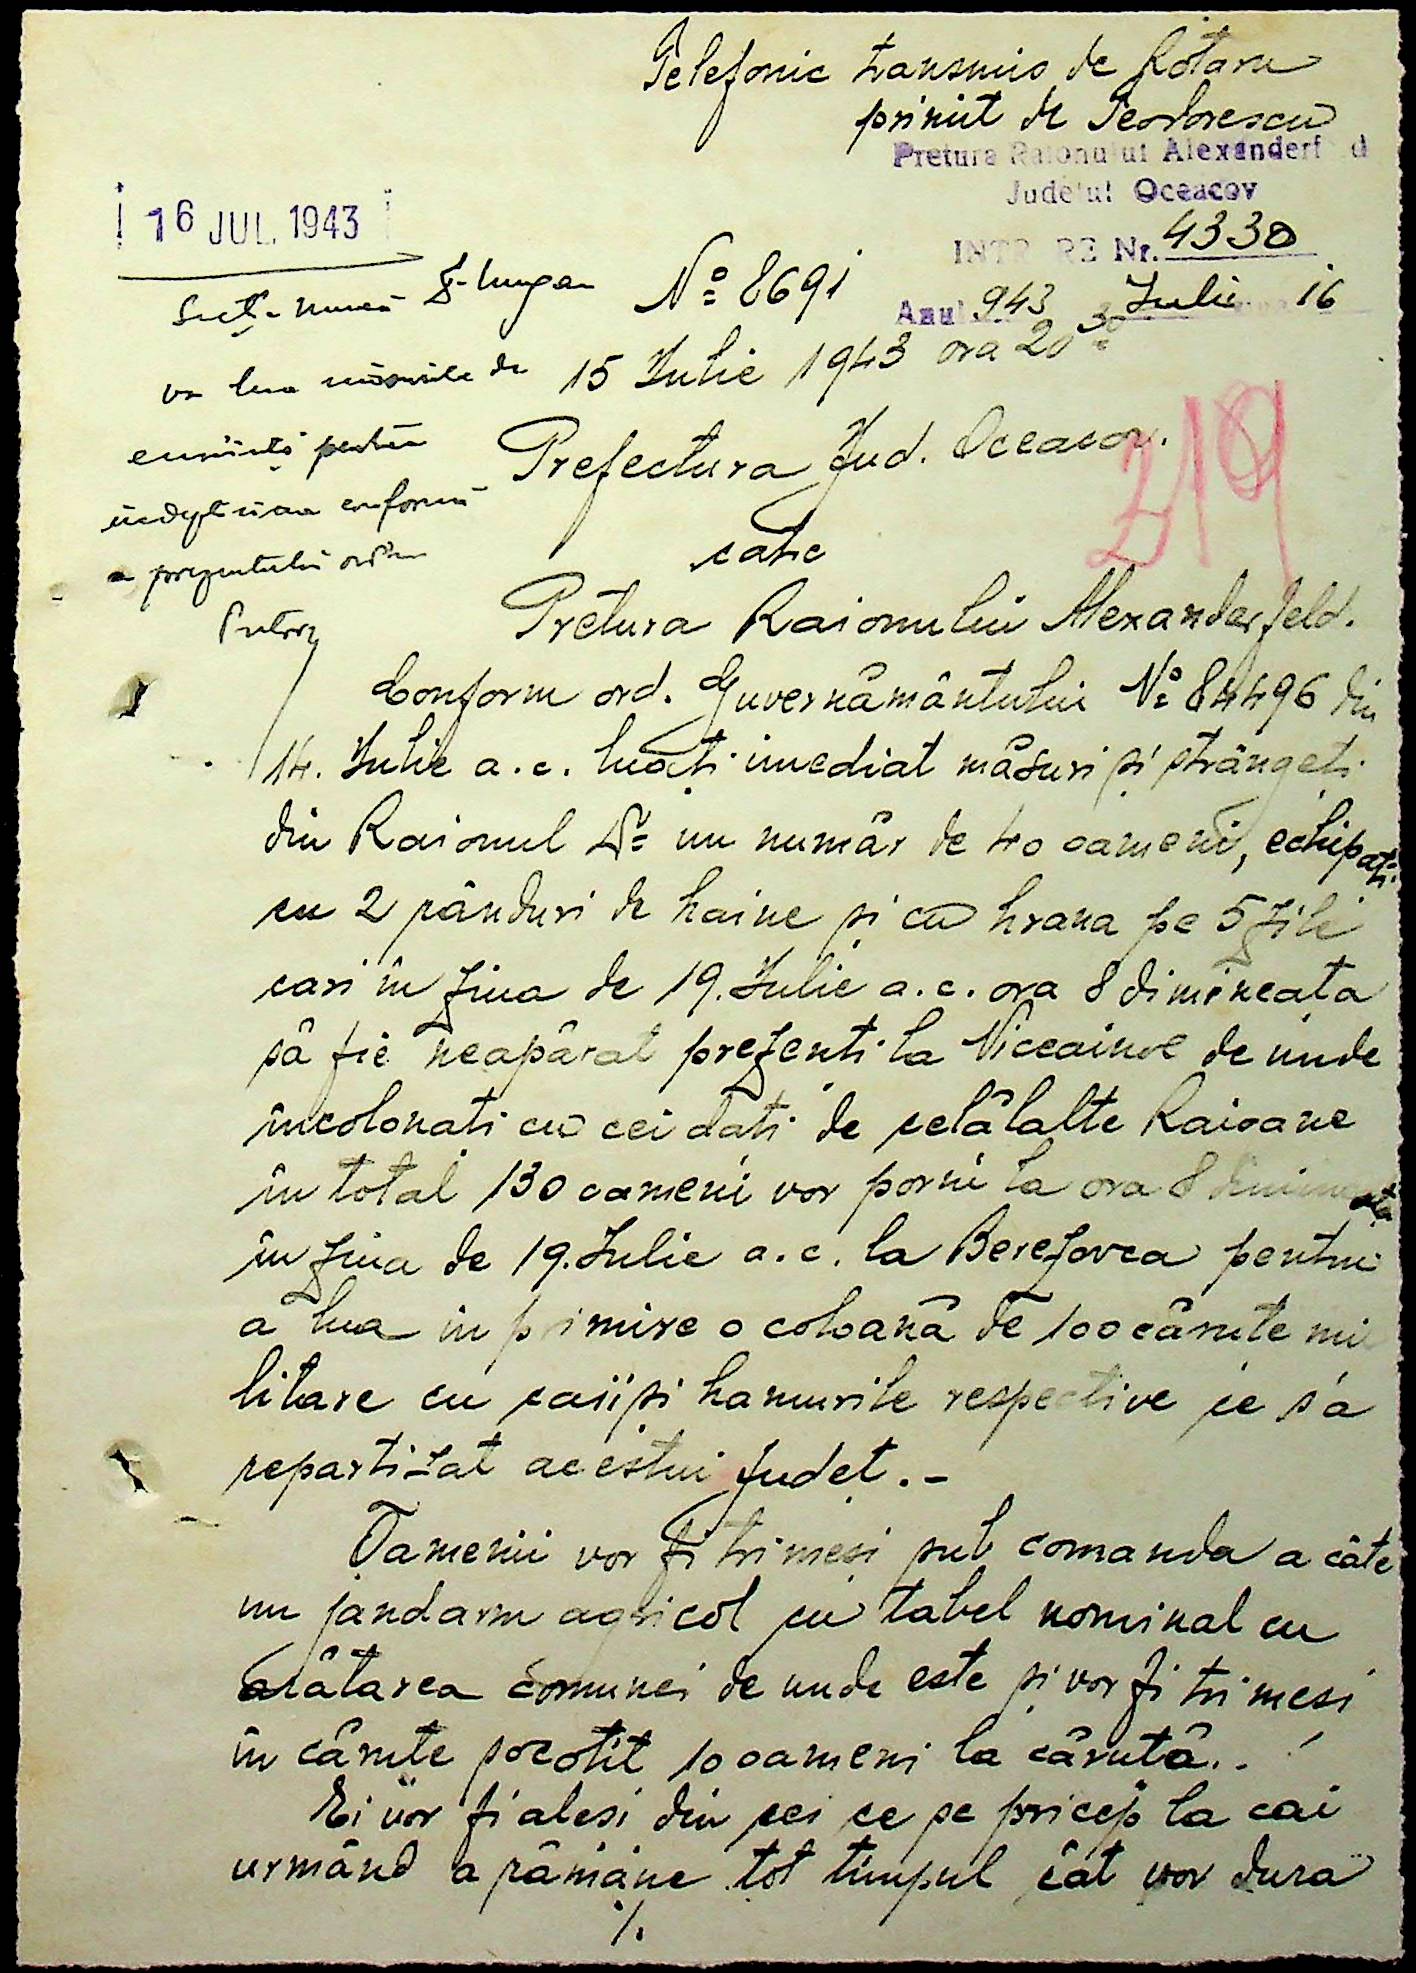 Telefonic transmis de Rotaru
primit de Teodorescu
Pretura Raionului Alexanderf d
Judetul Oceacov
16 JUL. 1943
INTR RE Nr. 4330
Anul 943 Iulie 16
No 8691
15 Iulie 1943 ora 20 30
va lua măsurile de
cuviință pentru
îndeplinirea conformă
a prezentului ordin
Pretor
219
Prefectura Jud. Oceacov.
catre
Pretura Raionului Alexanderfeld.
Conform ord. Guvernământului No 84496 din
14. Iulie a.c. luați imediat măsuri și strângeți
din Raionul Dv un număr de 40 oameni, echipați
cu 2 rânduri de haine și cu hrana pe 5 zile
cari în ziua de 19. Iulie a.c. ora 8 dimineața
să fie neapărat prezenti la de unde
încolonati cu cei dați de celălalte Raioane
în total 130 oameni vor porni la ora 8 dimineața
în ziua de 19. Iulie a.c. la Berezovca pentru
a lua in primire o coloană de 100 cărute mi
litare cu caii și hamurile respective ce s'a
repartizat acestui Județ. -
Oamenii vor fi trimeși sub comanda a câte
un jandarm agricol cu tabel nominal cu
arătarea comunei de unde este și vor fi trimesi
în cărute socotit 10 oameni la căruță. .
Ei vor fi alesi din cei ce se pricep la cai
urmând a rămâne tot timpul cât vor dura
./.